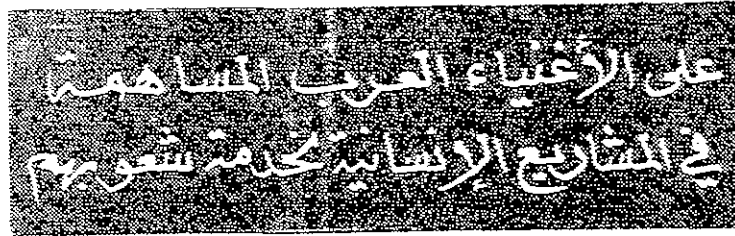 على الأغنياء العرب المساهمة
في المشاريع الإنسانية لخدمة شعوبهم